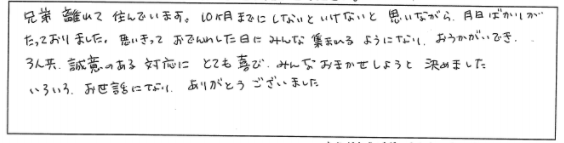 兄弟 離れて 住んでいます。10ヶ月までにしないといけないと 思いながら 月日ばかりが
たっておりました。思いきって おでんわした日に みんな 集まれる ようになり、おうかがいでき、
3人共、誠意のある 対応に とても喜び、みんなおまかせしようと 決めました
いろいろ お世話になり、ありがとう ございました